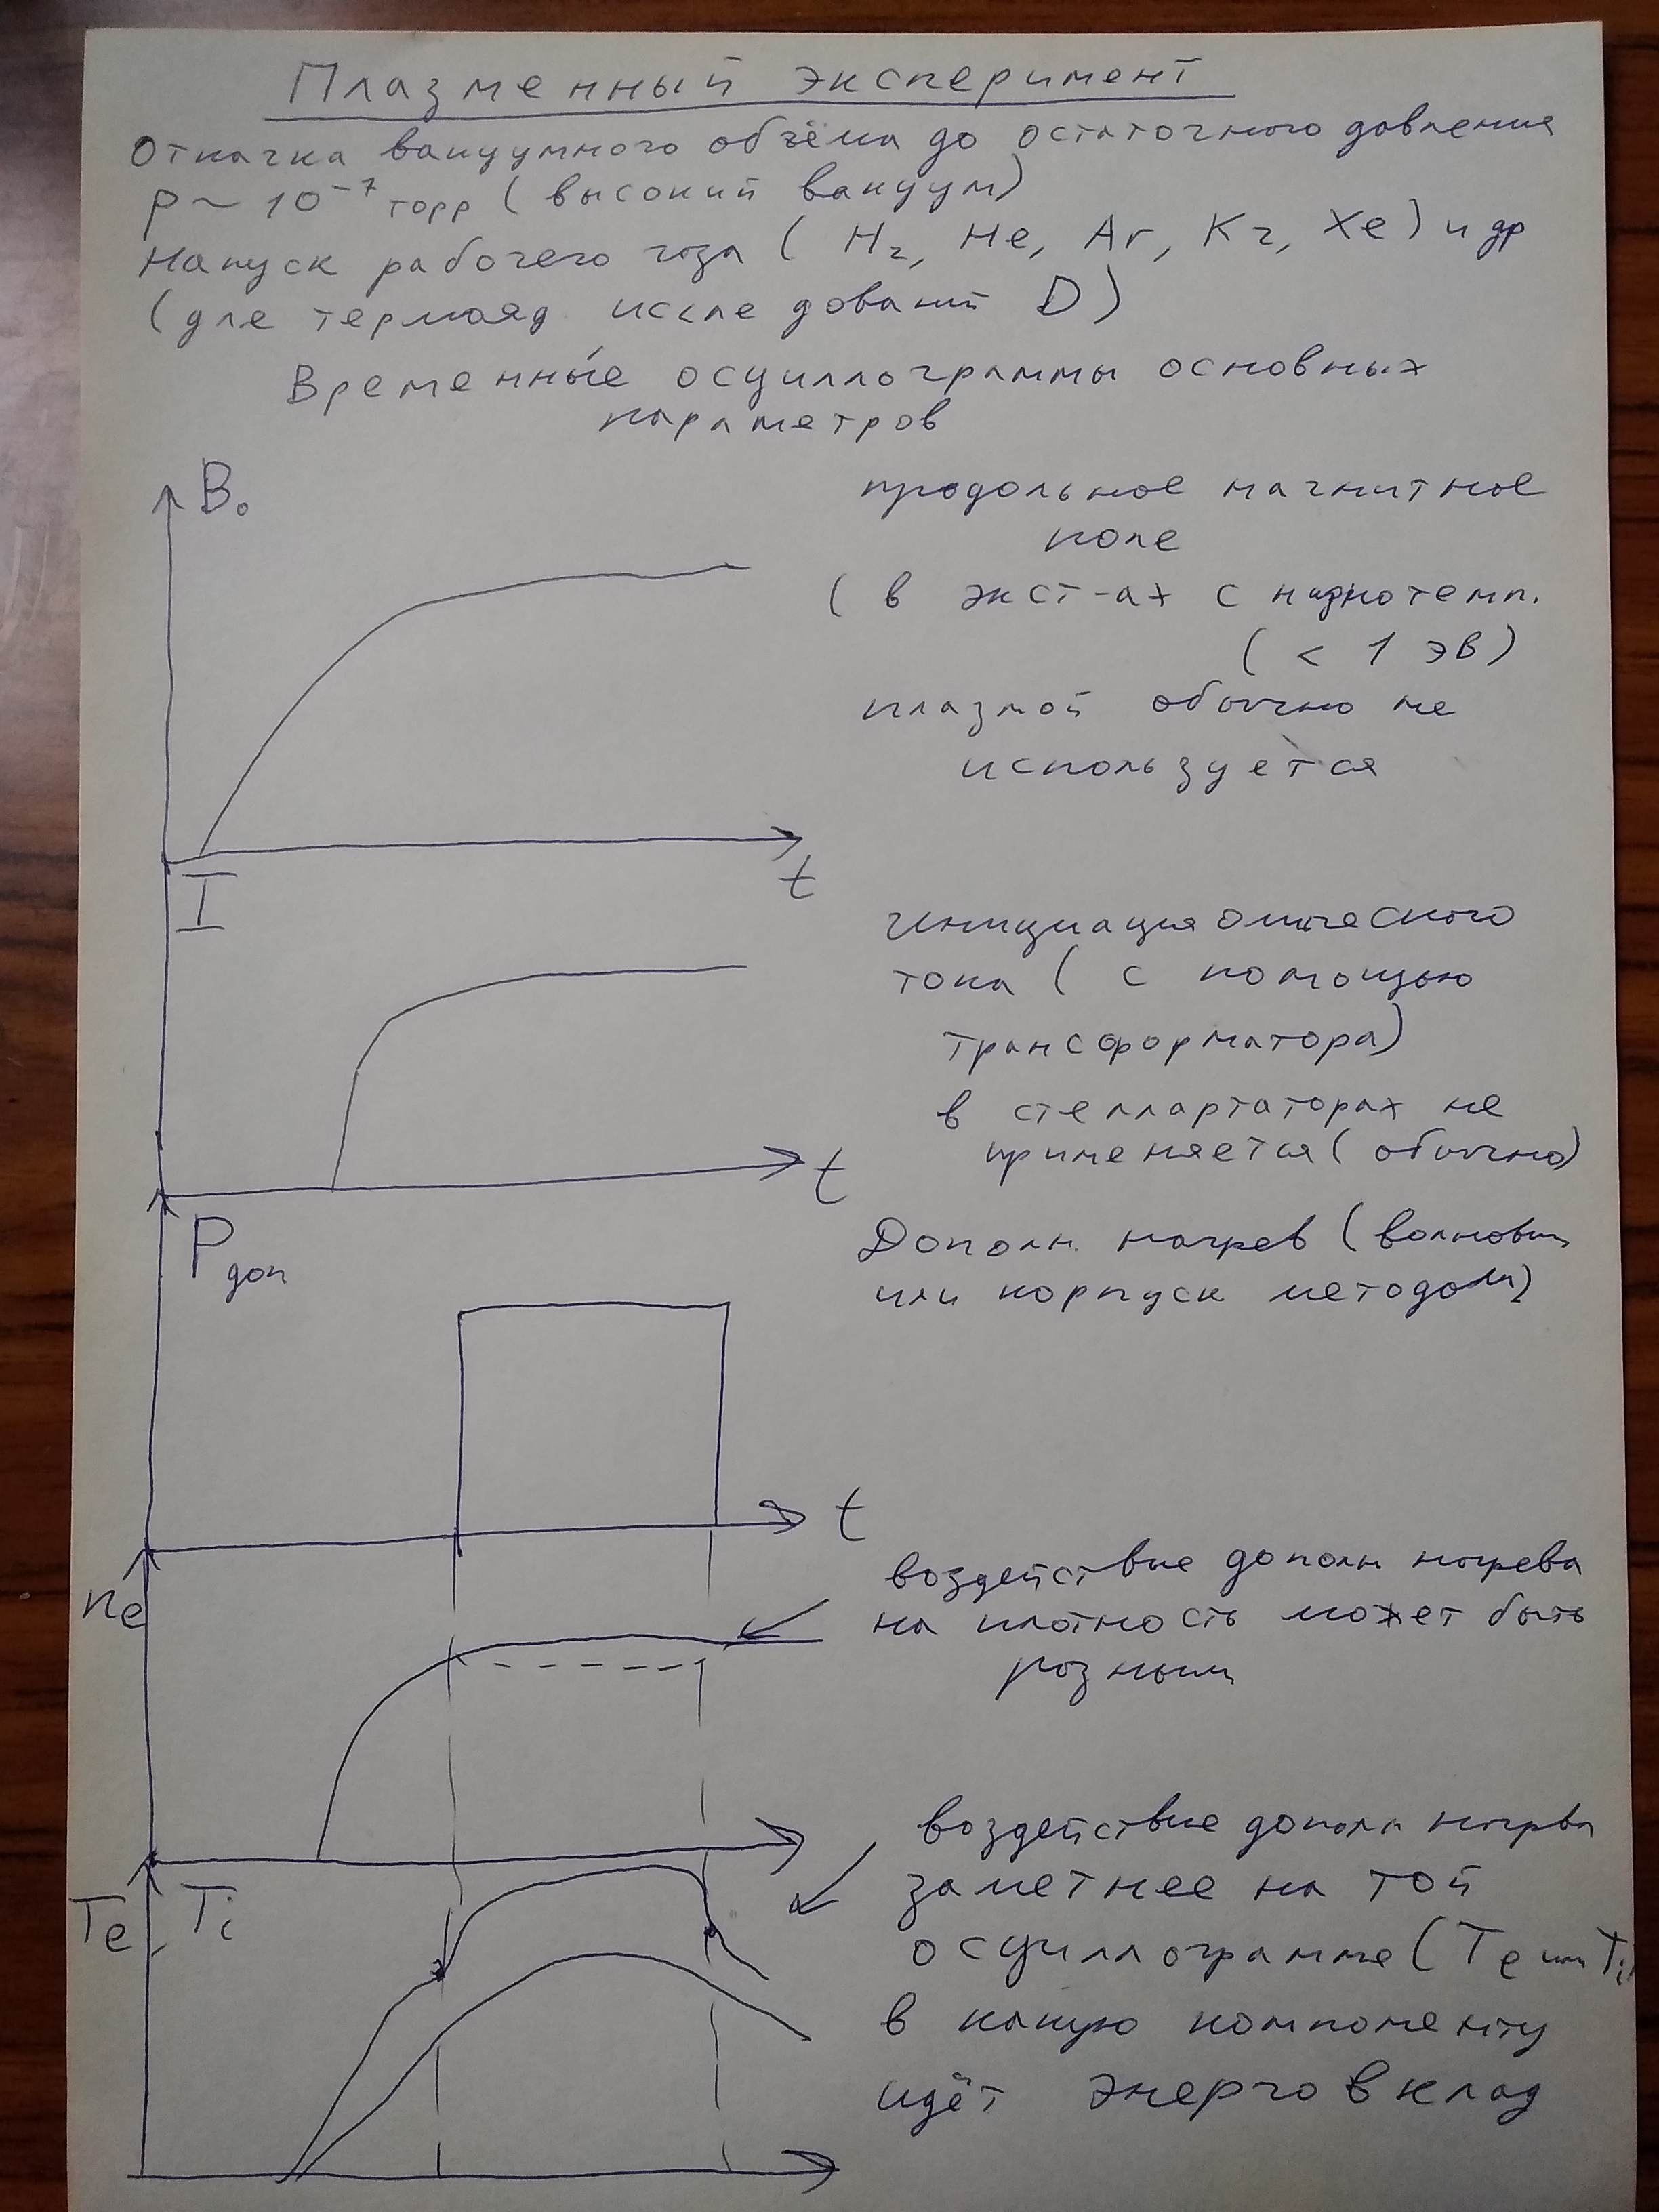 Плазменный эксперимент
Откачка вакуумного объёма до остаточного давления
p ~ 10⁻⁷ торр (высокий вакуум)
Напуск рабочего газа (H₂, He, Ar, Kr, Xe) и др
(для термояд исследований D)
Временны́е осциллограммы основных
параметров
B₀
продольное магнитное
поле
(в экст-ах с низкотемп.
(< 1 эВ)
плазмой обычно не
используется
t
I
инициация омического
тока (с помощью
трансформатора)
в стеллартаторах не
применяется (обычно)
t
Pдоп
Дополн. нагрев (волновым
или корпуск методом)
t
ne
воздействие дополн нагрева
на плотность может быть
разным
Te, Ti
воздействие дополн нагрева
заметнее на той
осциллограмме (Te или Ti)
в какую компоненту
идёт энерговклад